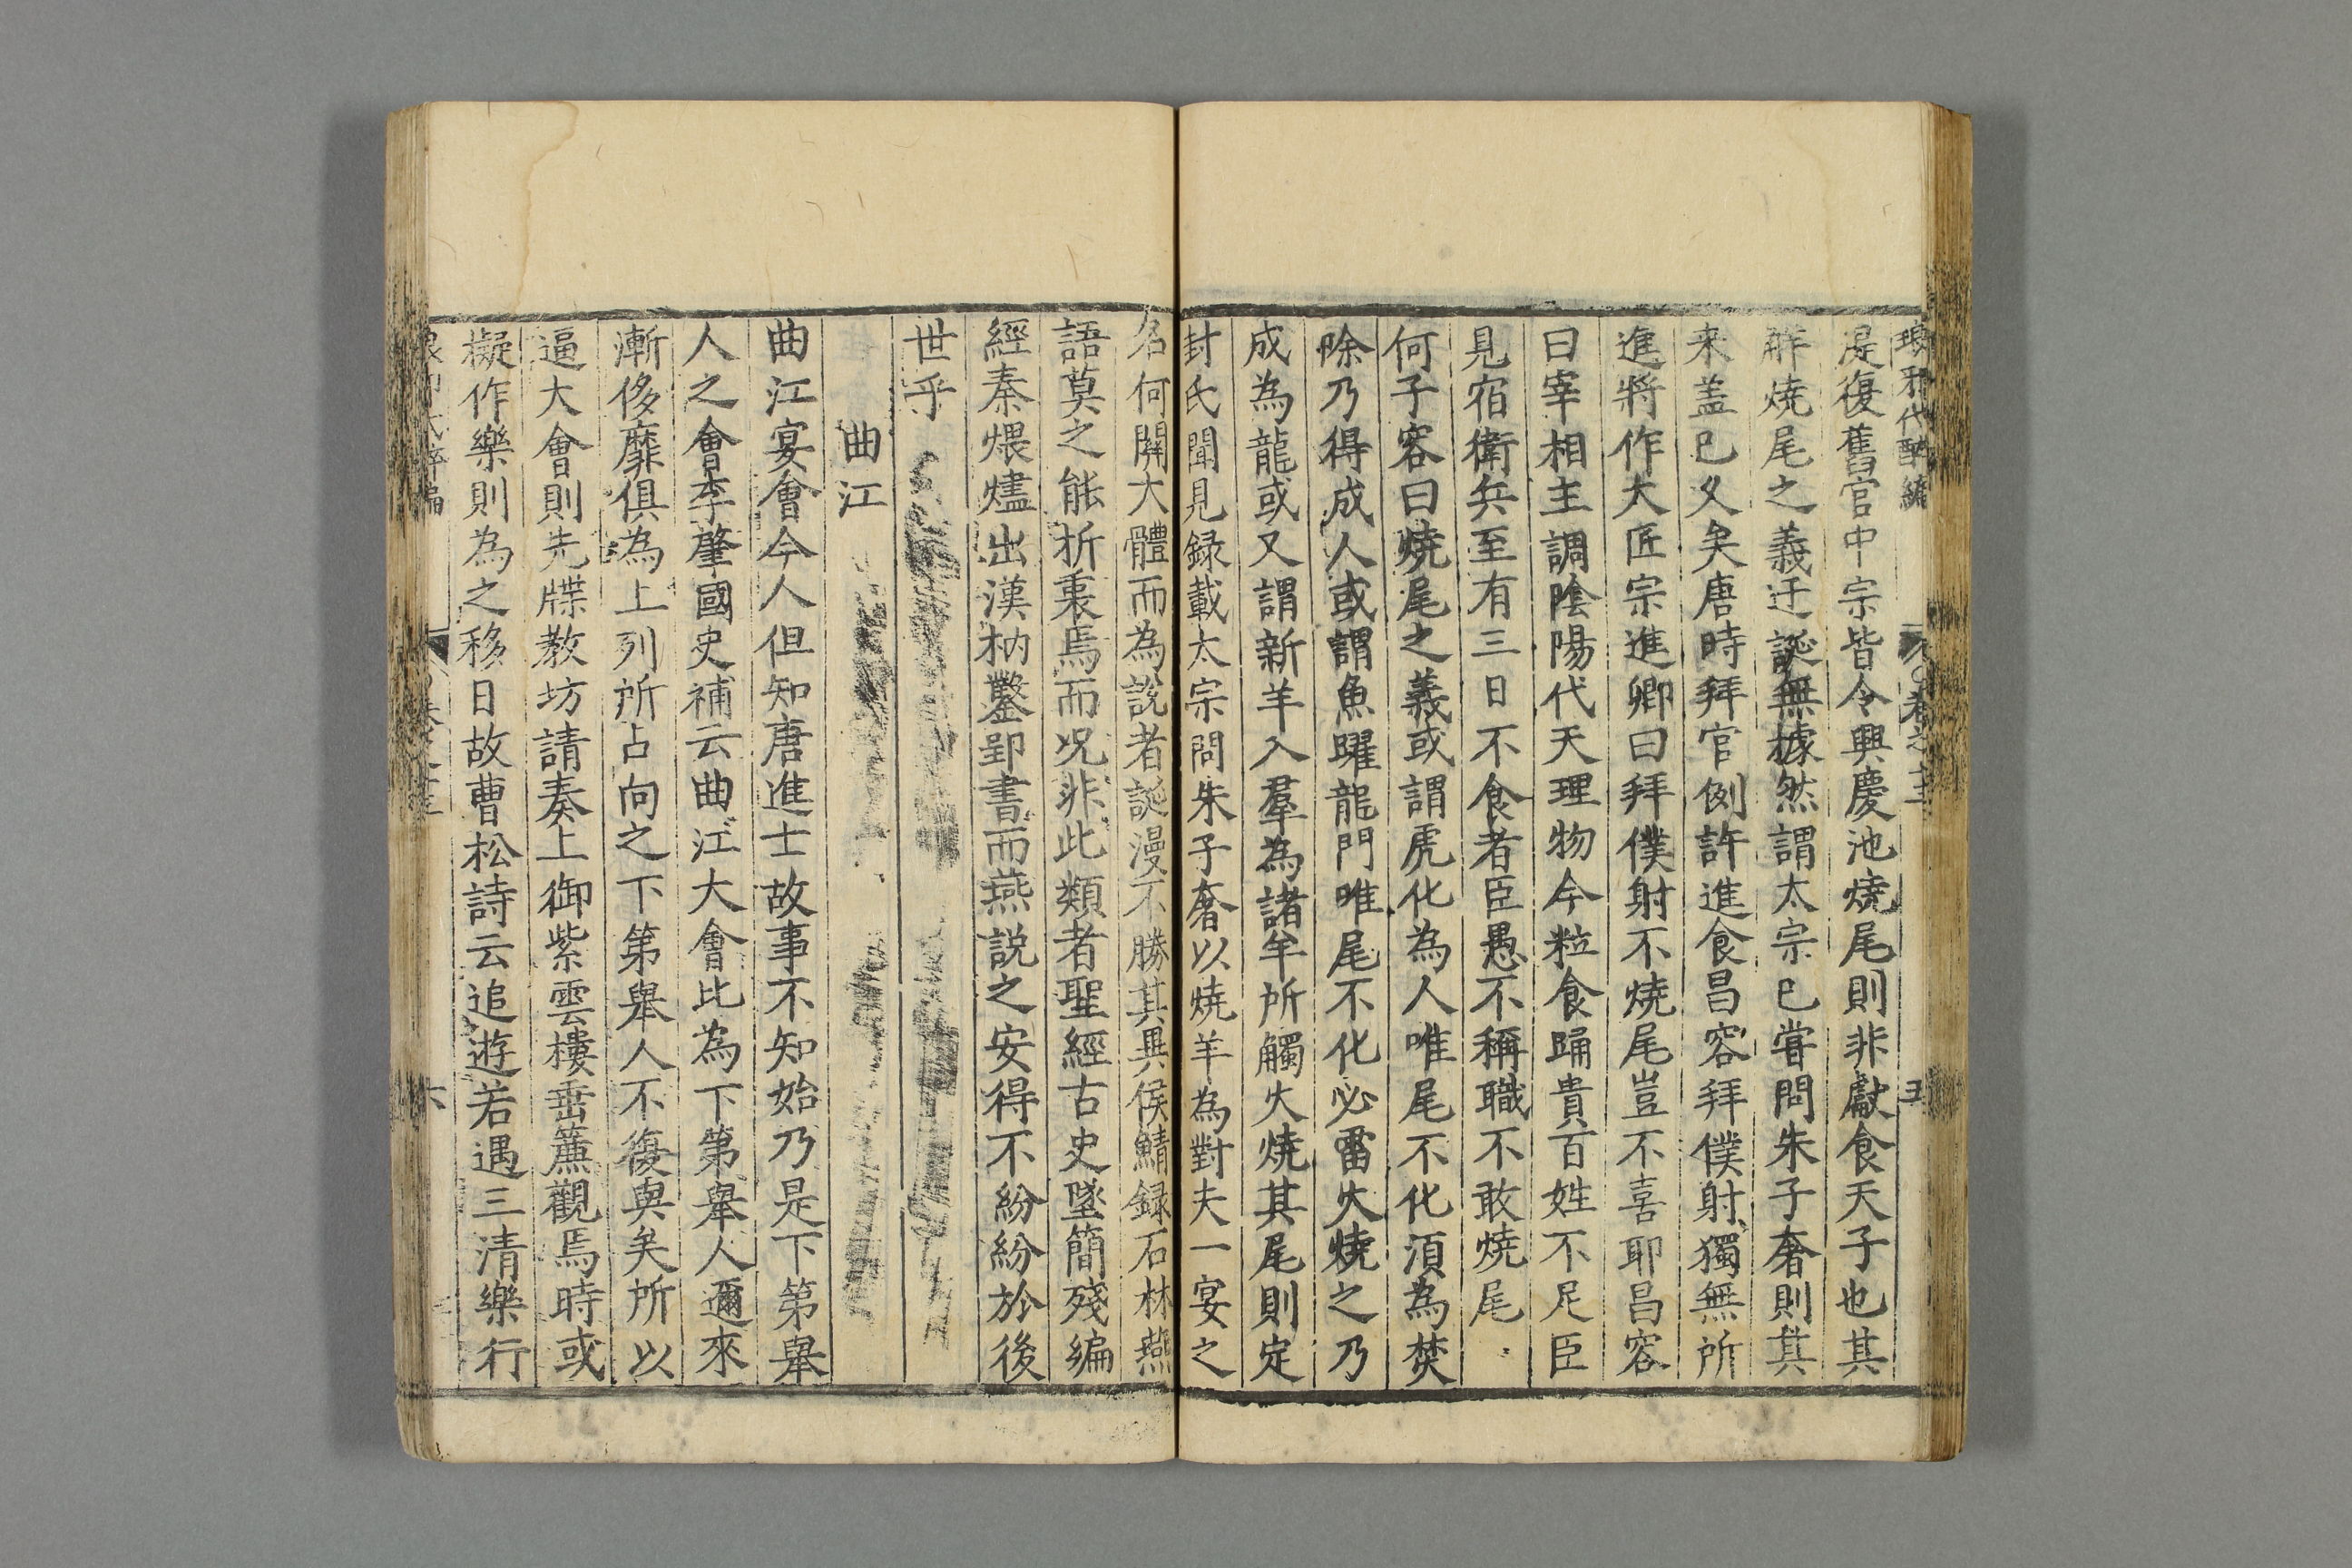 琅邪代醉編 卷之十三 五
湜復舊官中宗皆令興慶池燒尾則非獻食天子也其
解燒尾之義迂誕無據然謂太宗已嘗問朱子奢則其
来盖已乆矣唐時拜官例許進食昌容拜僕射獨無所
進將作大匠宗進卿曰拜僕射不燒尾豈不喜耶昌容
曰宰相主調陰陽代天理物今粒食踊貴百姓不足臣
見宿衛兵至有三日不食者臣愚不稱職不敢燒尾
何子容曰燒尾之義或謂虎化為人唯尾不化湏為焚
除乃得成人或謂魚躍龍門唯尾不化必雷火燒之乃
成為龍或又謂新羊入羣為諸羊所觸火燒其尾則定
封氏聞見録載太宗問朱子奢以燒羊為對夫一宴之
名何關大體而為說者誕漫不勝其異侯鯖録石林燕
語莫之能折衷焉而况非此類者聖經古史墜簡殘編
經秦煨燼出漢枘鑿郢書而燕説之安得不紛紛於後
世乎
曲江
曲江宴會今人但知唐進士故事不知始乃是下第舉
人之會李肇國史補云曲江大會比為下第舉人邇來
漸侈靡俱為上列所占向之下第舉人不復與矣所以
逼大會則先牒教坊請奏上御紫雲樓垂簾觀焉時或
擬作樂則為之移日故曹松詩云追遊若遇三清樂行
六